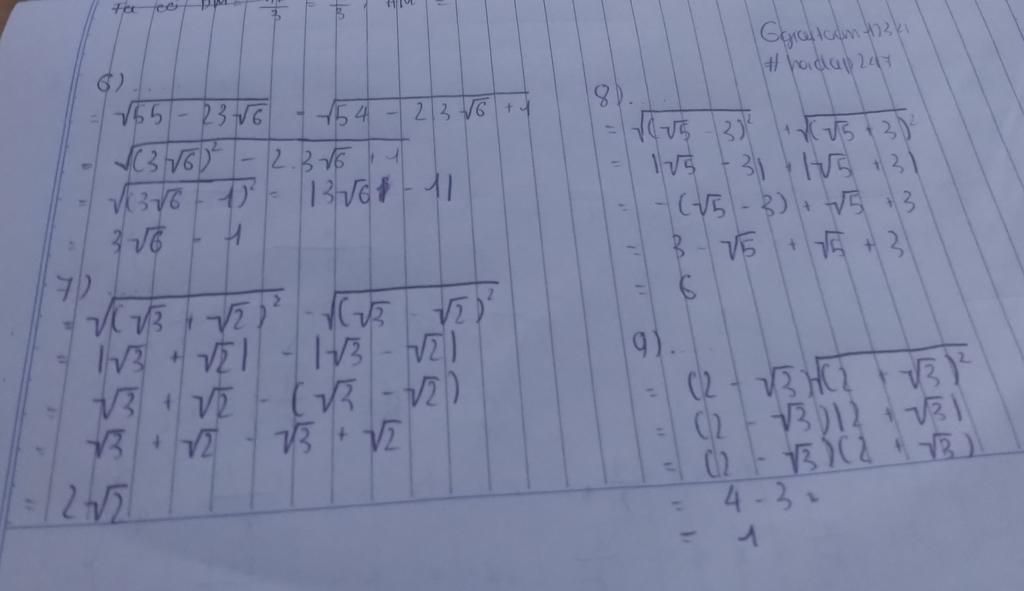 6) ...
= √55 - 2 3 √6 = √54 - 2 3 √6 + 1
= √(3√6)² - 2.3√6 + 1
= √(3√6 - 1)² = |3√6 - 1|
= 3√6 - 1
7) ...
= √(√3 + √2)² - √(√3 - √2)²
= |√3 + √2| - |√3 - √2|
= √3 + √2 - (√3 - √2)
= √3 + √2 - √3 + √2
= 2√2
8) ...
= √(√5 - 3)² + √(√5 + 3)²
= |√5 - 3| + |√5 + 3|
= -(√5 - 3) + √5 + 3
= 3 - √5 + √5 + 3
= 6
9) ...
= (2 - √3)√(2 + √3)²
= (2 - √3)|2 + √3|
= (2 - √3)(2 + √3)
= 4 - 3
= 1